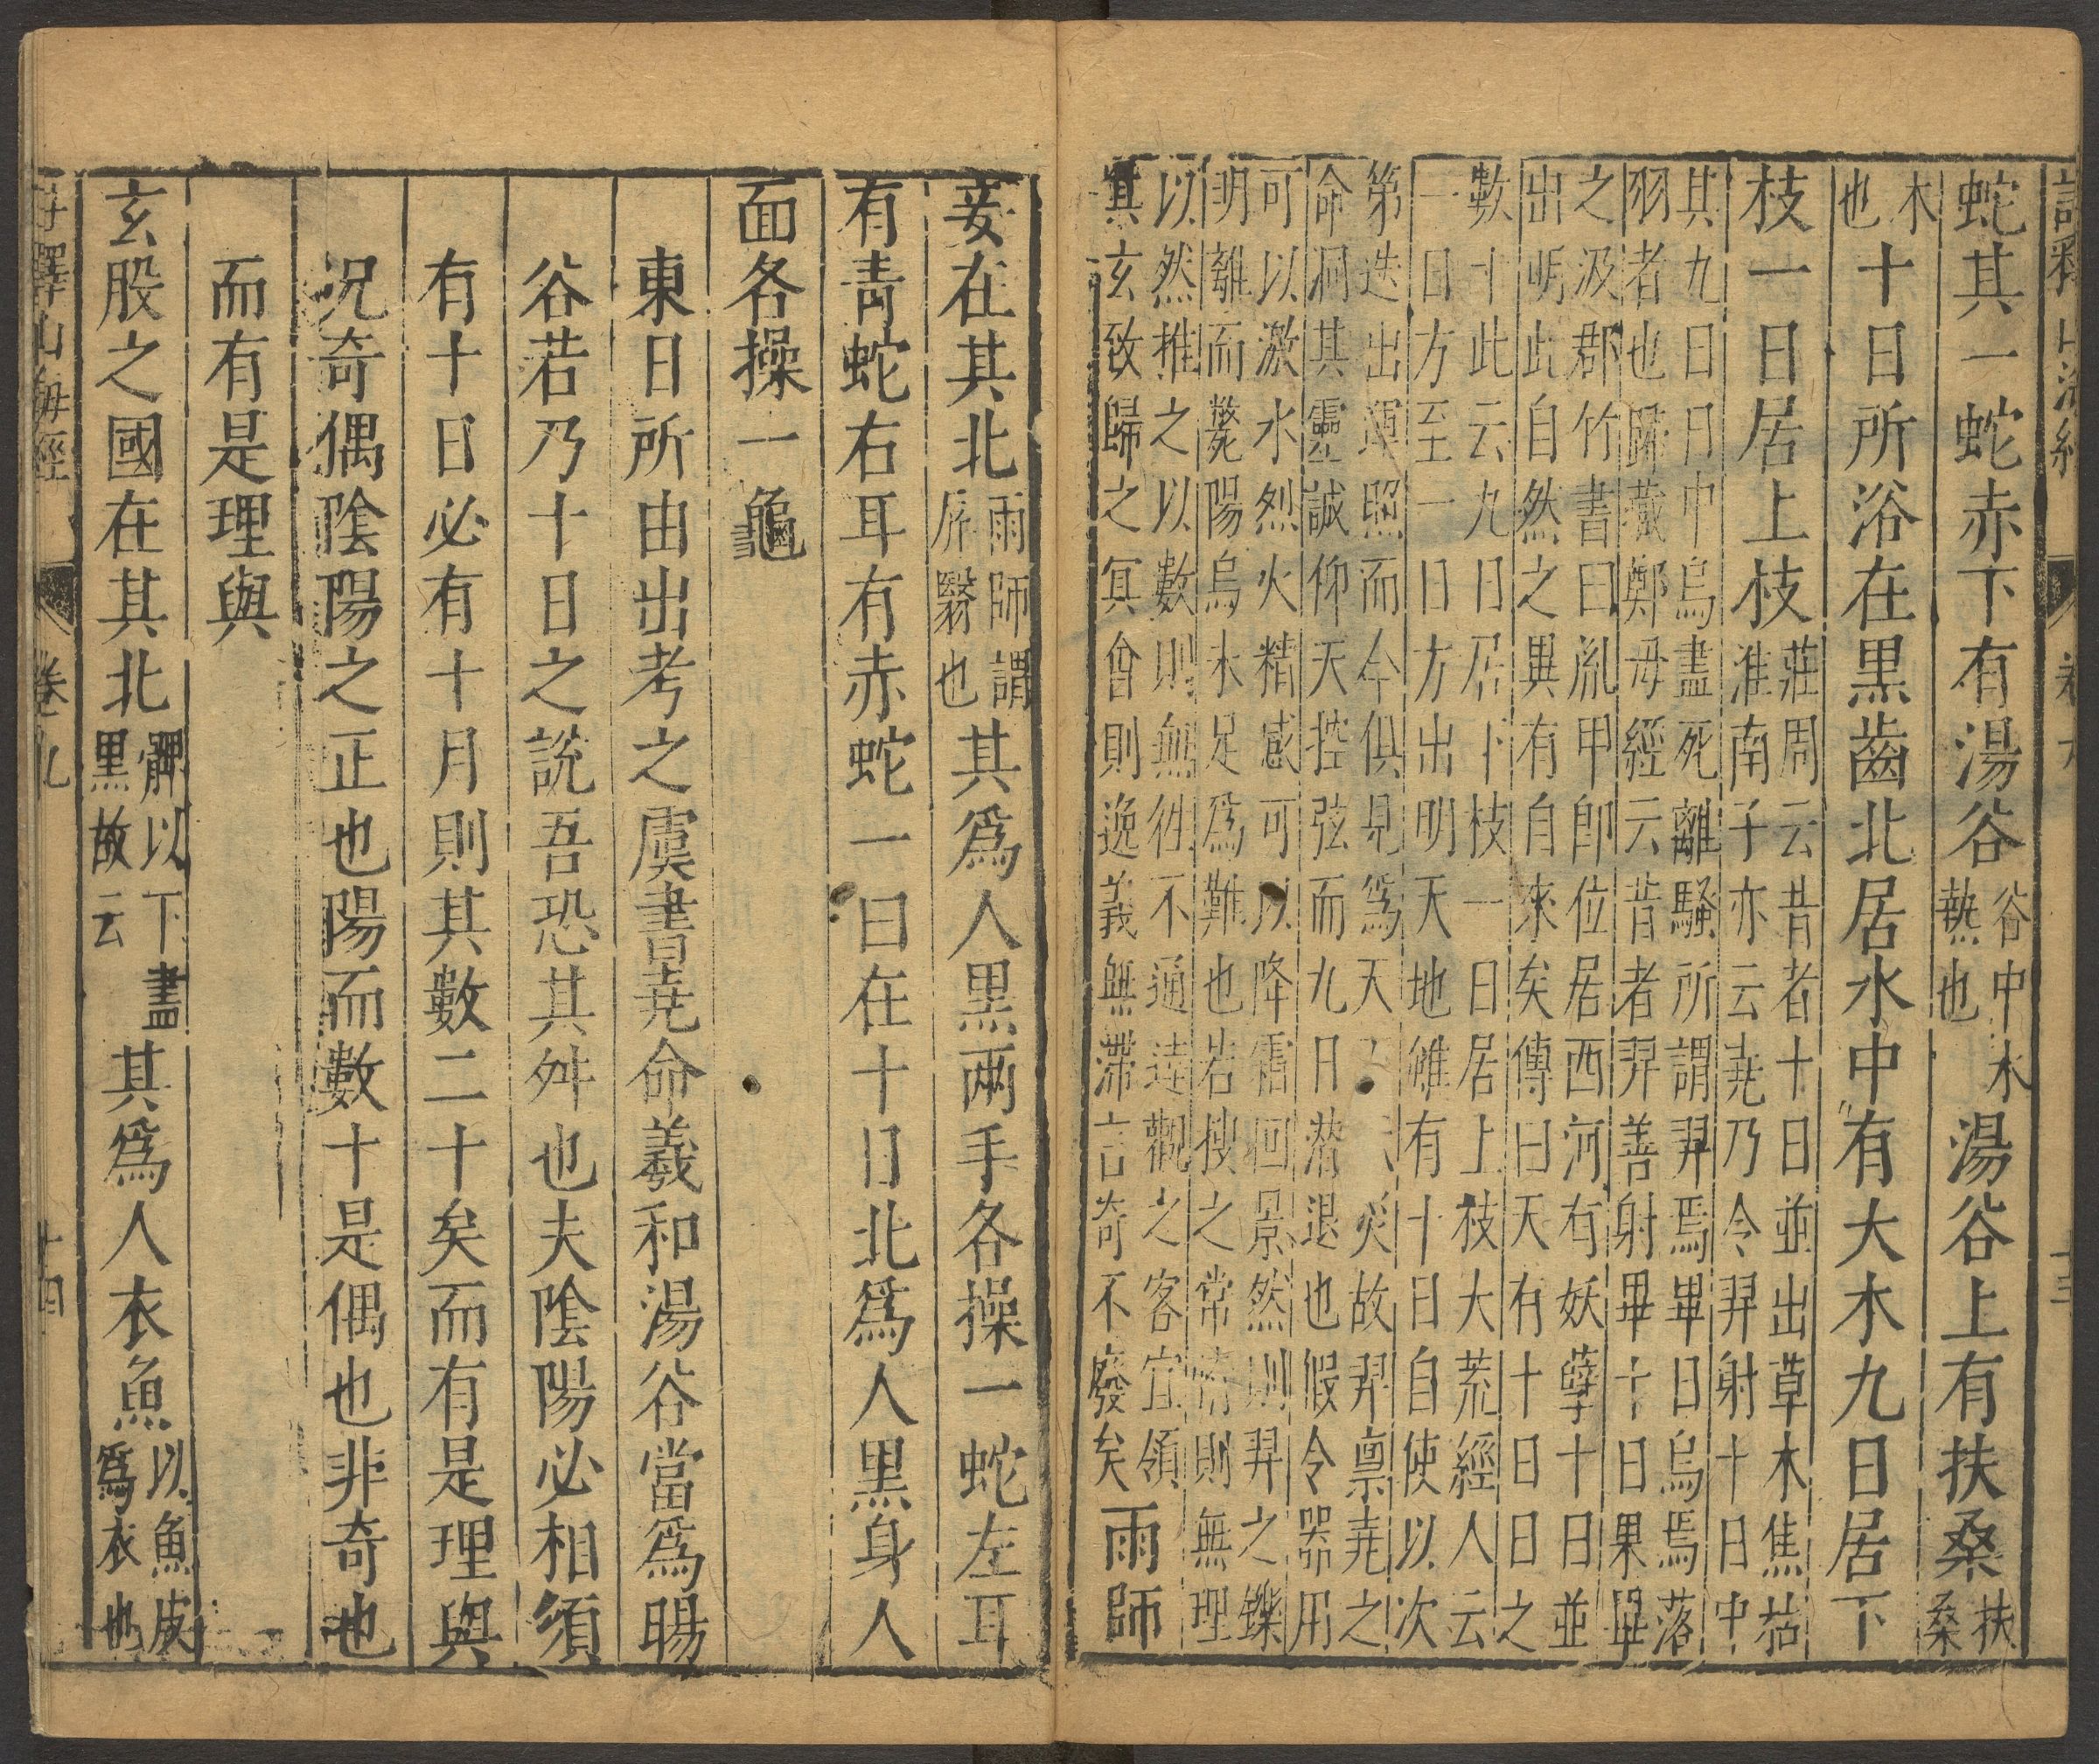 註釋山海經 卷九 十三
蛇其一蛇赤下有湯谷谷中水
熱也湯谷上有扶桑扶
桑
木
也十日所浴在黒齒北居水中有大木九日居下
枝一日居上枝莊周云昔者十日並出草木焦枯
淮南子亦云堯乃令羿射十日中
其九日日中烏盡死離騷所謂羿焉畢日烏焉落
羽者也歸藏鄭母經云昔者羿善射畢十日果畢
之汲郡竹書曰胤甲卽位居西河有妖孽十日並
出明此自然之異有自來矣傳曰天有十日日之
數十此云九日居下枝一日居上枝大荒經人云
一日方至一日方出明天地雖有十日自使以次
第迭出運照而今俱見爲天災故羿禀堯之
命洞其靈誠仰天控弦而九日潛退也假令器用
可以激水烈火精感可以降霜回景然則羿之鑠
明離而斃陽烏未足爲難也若搜之常情則無理
以然推之以數則無徃不通達觀之客宜領
其玄致歸之冥會則逸義無滯言奇不廢矣雨師
妾在其北雨師謂
屏翳也其爲人黒兩手各操一蛇左耳
有青蛇右耳有赤蛇一曰在十日北爲人黒身人
面各操一龜
東日所由出考之虞書堯命羲和湯谷當爲暘
谷若乃十日之說吾恐其舛也夫陰陽必相須
有十日必有十月則其數二十矣而有是理與
况奇偶陰陽之正也陽而數十是偶也非奇也
而有是理與
玄股之國在其北髀以下盡
黒故云其爲人衣魚以魚皮
爲衣也
註釋山海經 卷九 十四